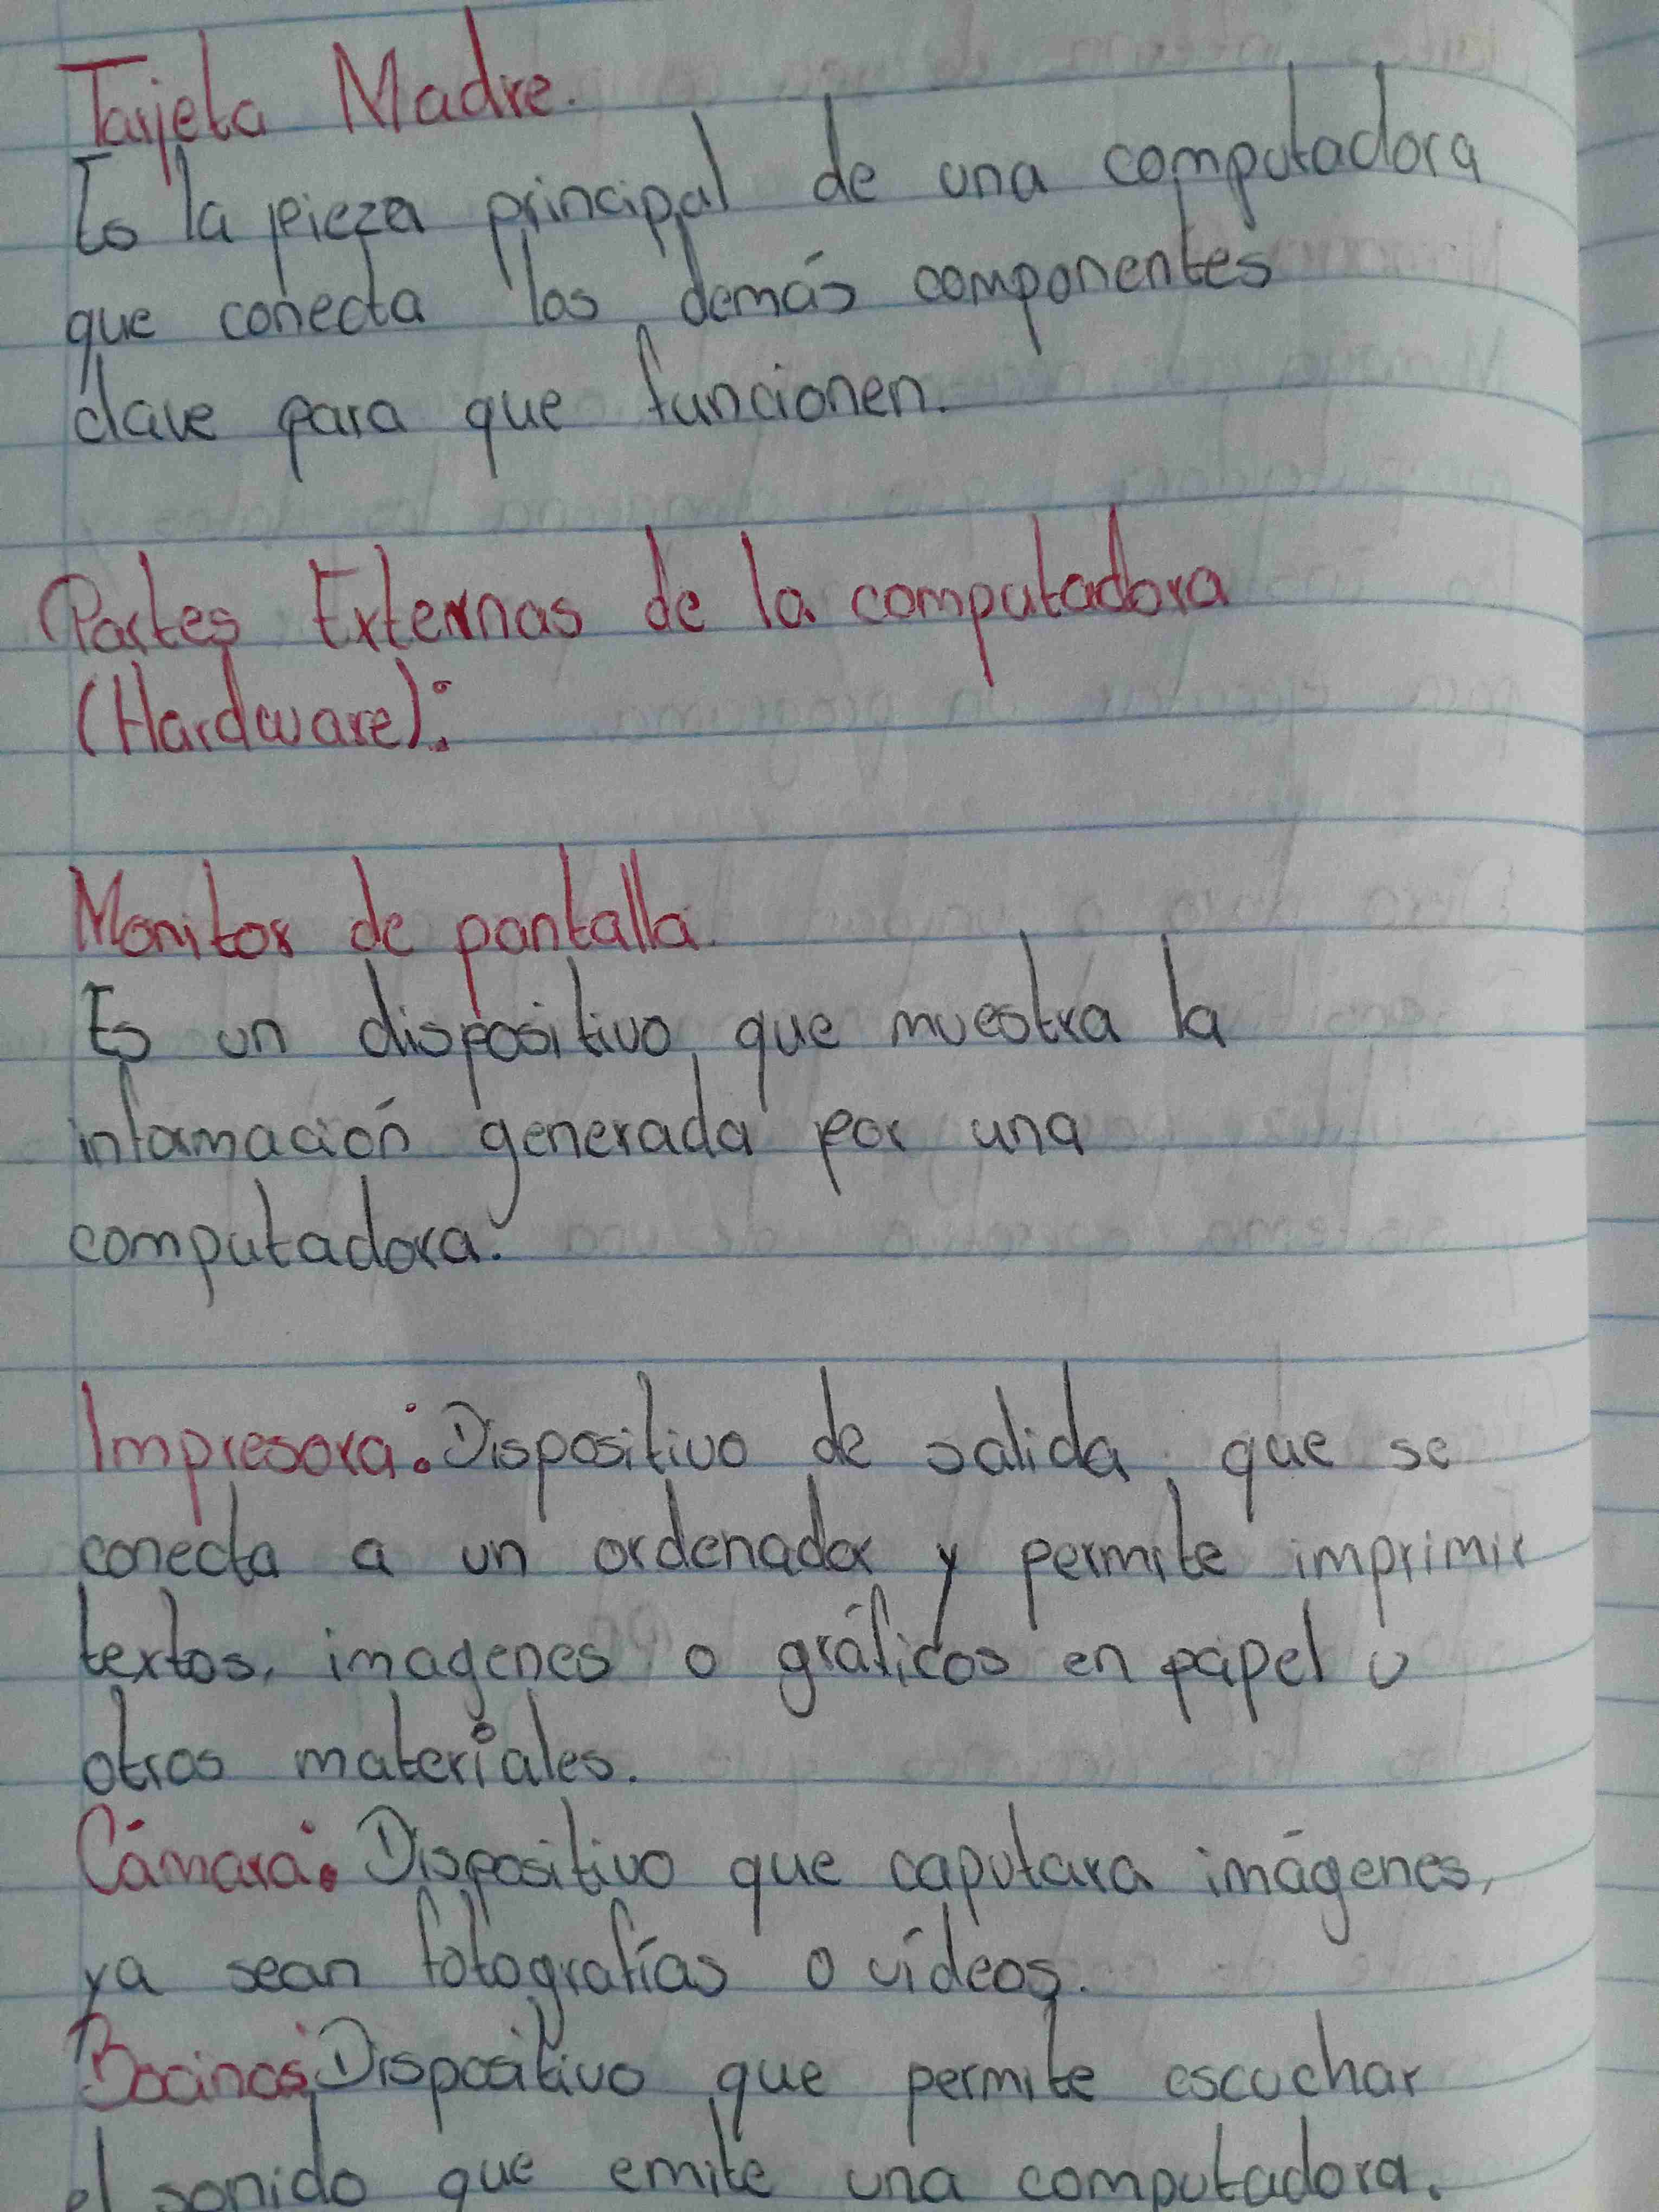 Tarjeta Madre.
Es la pieza principal de una computadora
que conecta los demás componentes
clave para que funcionen.
Partes Externas de la computadora
(Hardware):
Monitor de pantalla.
Es un dispositivo que muestra la
información generada por una
computadora.
Impresora: Dispositivo de salida, que se
conecta a un ordenador y permite imprimir
textos, imagenes o gráficos en papel u
otros materiales.
Cámara: Dispositivo que caputara imágenes,
ya sean fotografías o vídeos.
Bocinas: Dispositivo que permite escuchar
el sonido que emite una computadora.